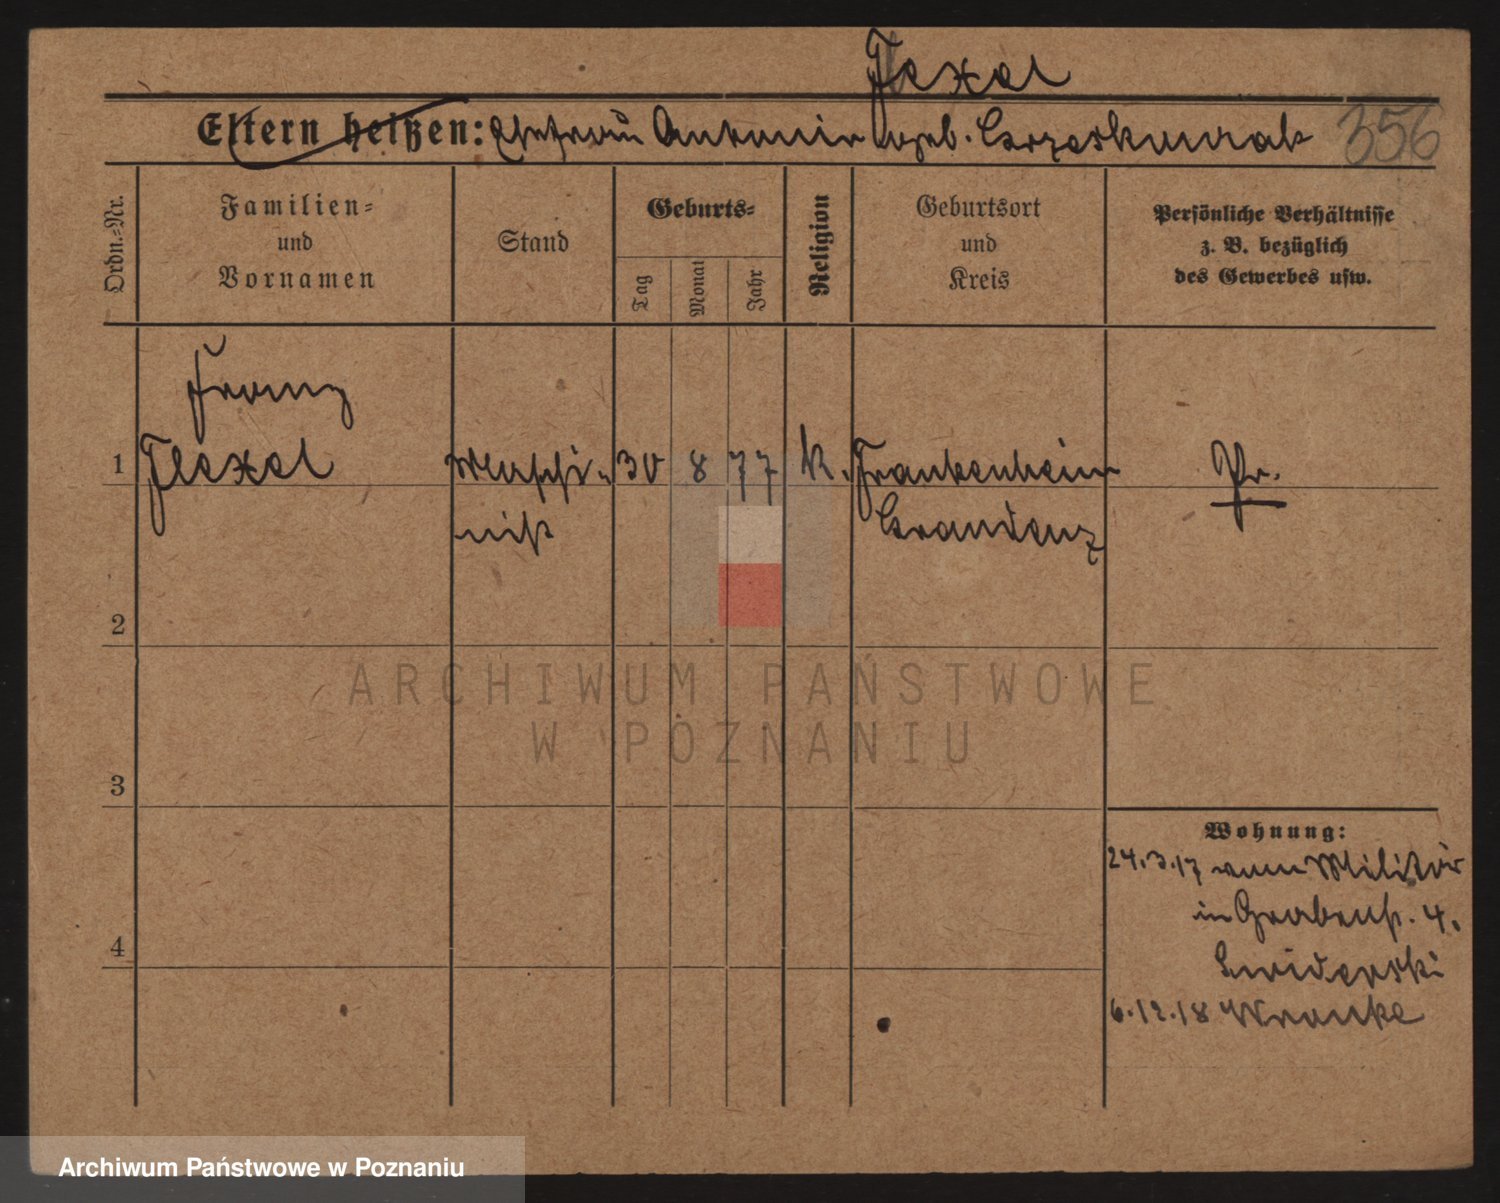 Flexel
Eltern heißen: Ehefrau Antonie geb. Grzeskowiak 356
Ordn.-Nr.
Familien-
und
Vornamen
Stand
Geburts-
Tag
Monat
Jahr
Religion
Geburtsort
und
Kreis
Persönliche Verhältnisse
z. B. bezüglich
des Gewerbes usw.
Franz
1 Flexel Maschi- 30 8 77 k. Frankenhein Pr.
nist Graudenz
2
3
4
Wohnung:
24.3.17 vom Militär
in Grabenstr. 4.
Swiderski
6.12.18 Wronke
ARCHIWUM PAŃSTWOWE
W POZNANIU
Archiwum Państwowe w Poznaniu